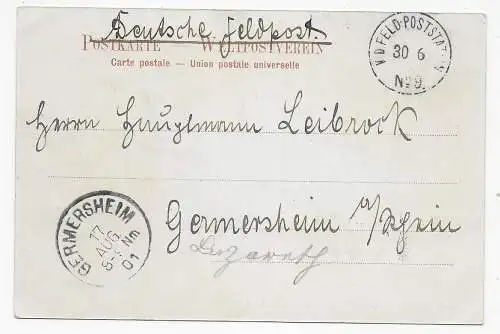 Deutsche Feldpost.
POSTKARTE WELTPOSTVEREIN
Carte postale — Union postale universelle
K.D. FELD-POSTSTATION
30 6
No 9.
Herrn Hauptmann Leibrock
GERMERSHEIM
17
AUG
8-9 Nm
01
Germersheim a/Rhein
Lazareth